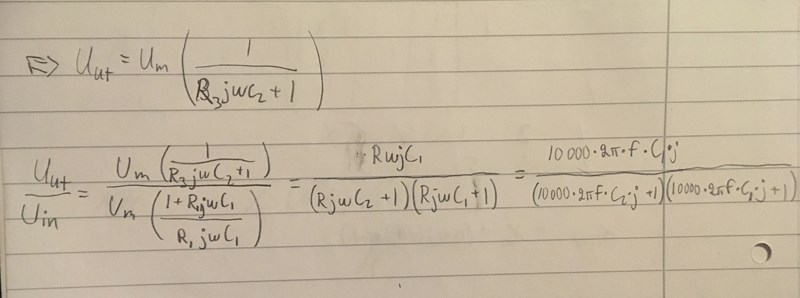 ⇒ U_ut = U_m (1 / (R_3jωC_2 + 1))
U_ut / U_in = U_m (1 / (R_3jωC_2 + 1)) / U_m ((1 + R_1jωC_1) / (R_1jωC_1)) = RωjC_1 / ((RjωC_2 + 1)(RjωC_1 + 1)) = 10 000 · 2π · f · C_1 · j / ((10000 · 2πf · C_2 · j + 1)(10000 · 2πf · C_1 · j + 1))